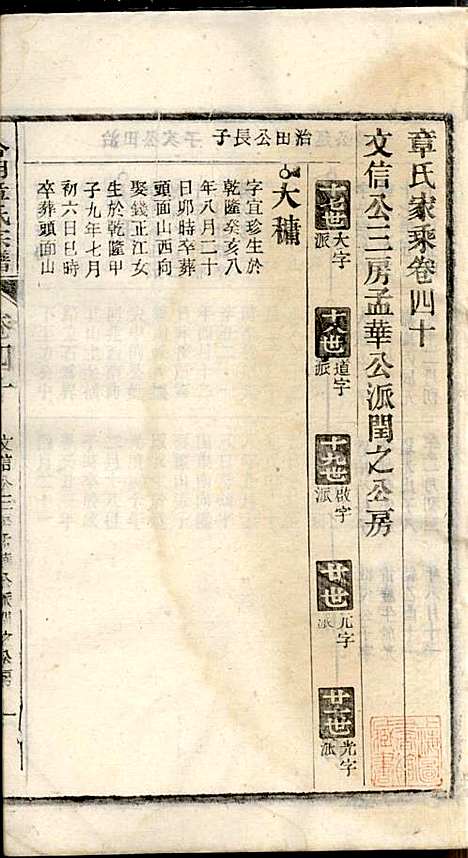 章氏家乘卷四十
文信公三房孟華公派閏之公房
十七世大字派
十八世道字派
十九世啟字派
廿世元字派
廿一世光字派
治田公長子
大穗
字宜珍生於
乾隆癸亥八
年八月二十
日卯時卒葬
頭面山西向
娶錢正江女
生於乾隆甲
子九年七月
初六日巳時
卒葬頭面山
卷四十